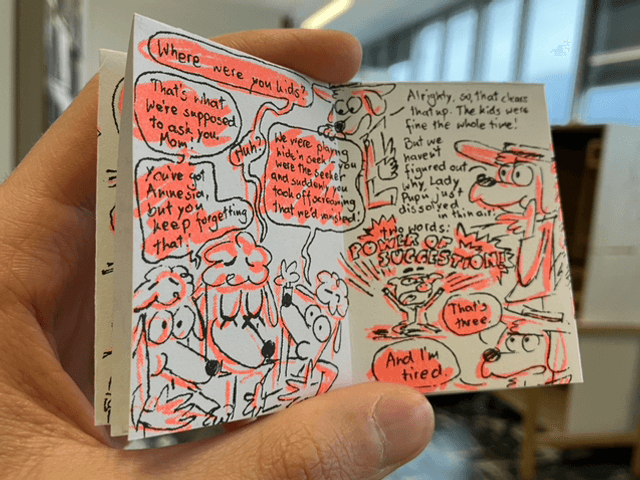 Where were you kids?
That's what
we're supposed
to ask you,
Mom!
Huh?
You've got
Amnesia,
but you
keep forgetting
that!
We were playing
hide'n seek, you
were the seeker
and suddenly you
took off screaming
that we'd vanished!
Alrighty, so, that clears
that up. The kids were
fine the whole time!
But we
haven't
figured out
why Lady
Pupu just
dissolved
in thin air.
two words:
POWER OF
SUGGESTION!
That's
three.
And I'm
tired.